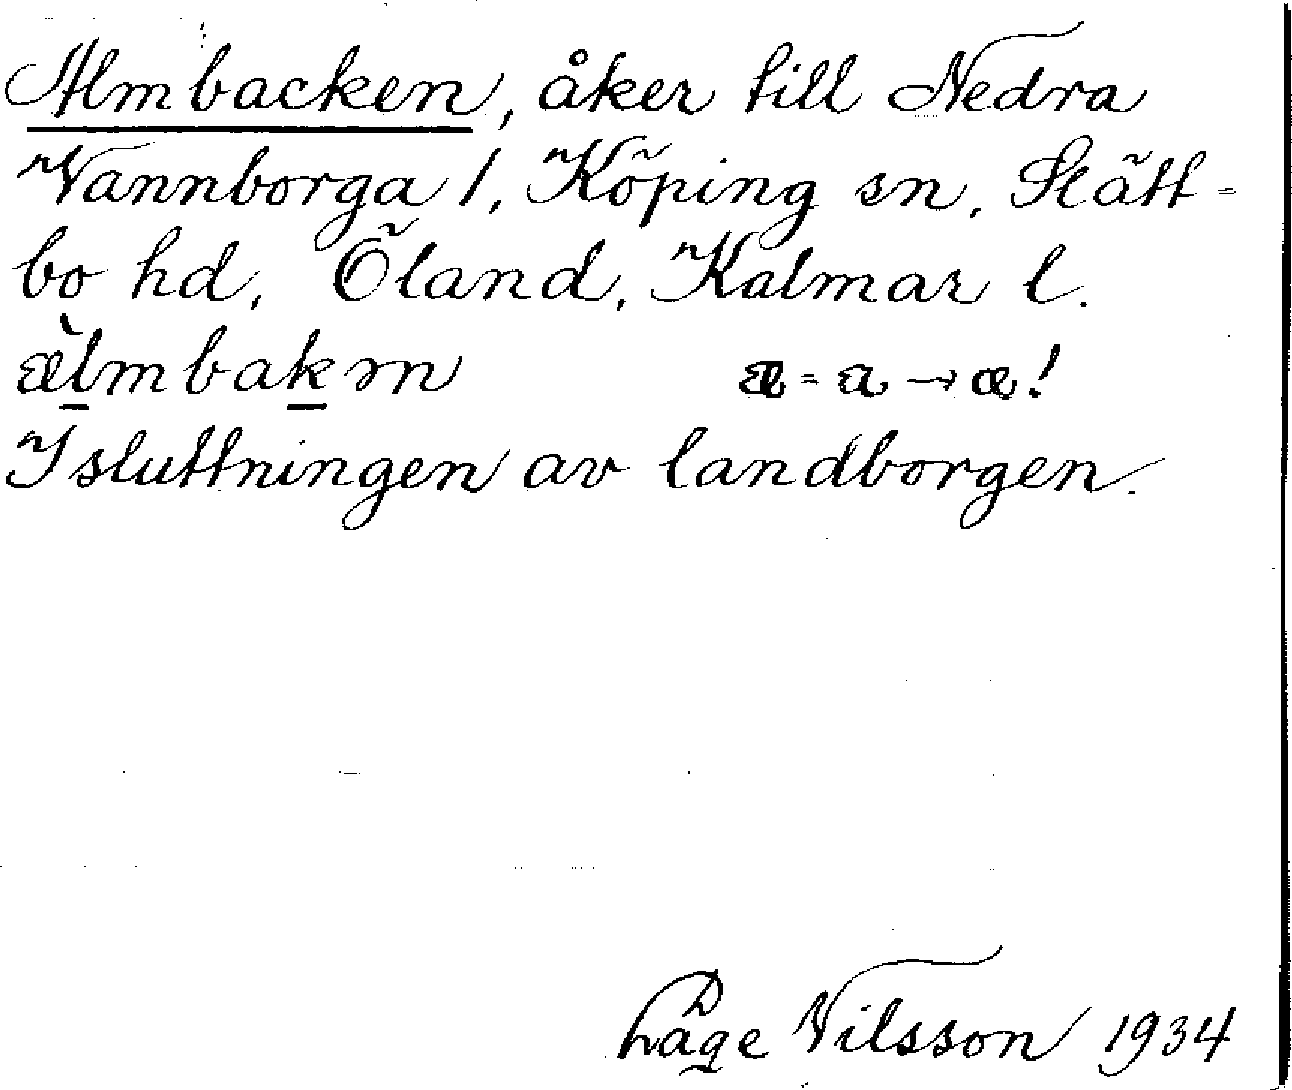 Almbacken, åker till Nedra
Vannborga 1, Köping sn, Slätt-
bo hd, Öland, Kalmar l.
æ̀lmbakən æ = a → æ!
I sluttningen av landborgen.
Låge Nilsson 1934